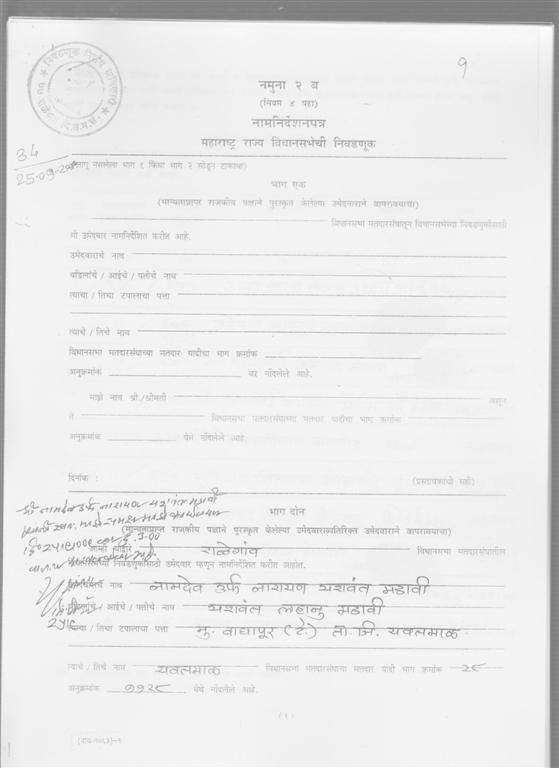 १
नमुना २ ब
(नियम ४ पहा)
नामनिर्देशनपत्र
महाराष्ट्र राज्य विधानसभेची निवडणूक
34
25-09-
(लागू नसलेला भाग १ किंवा भाग २ खोडून टाकावा)
भाग एक
(मान्यताप्राप्त राजकीय पक्षाने पुरस्कृत केलेल्या उमेदवाराने वापरावयाचा)
विधानसभा मतदारसंघातून विधानसभेच्या निवडणुकीसाठी
मी उमेदवार नामनिर्देशित करीत आहे.
उमेदवाराचे नाव
वडिलांचे / आईचे / पतीचे नाव
त्याचा / तिचा टपालाचा पत्ता
त्याचे / तिचे नाव
विधानसभा मतदारसंघाच्या मतदार यादीचा भाग क्रमांक
अनुक्रमांक वर नोंदलेले आहे.
माझे नाव श्री./श्रीमती असून
ते विधानसभा मतदारसंघाच्या मतदार यादीचा भाग क्रमांक
अनुक्रमांक येथे नोंदलेले आहे.
दिनांक : (प्रस्तावकाची सही)
श्री नामदेव उर्फ नारायण यशवंत मडावी
भाग दोन
(मान्यताप्राप्त राजकीय पक्षाने पुरस्कृत केलेल्या उमेदवाराव्यतिरिक्त उमेदवाराने वापरावयाचा)
आम्ही राळेगांव विधानसभा मतदारसंघातील
निवडणुकीसाठी उमेदवार म्हणून नामनिर्देशित करीत आहोत.
नाव नामदेव उर्फ नारायण यशवंत मडावी
/ आईचे / पतीचे नाव यशवंत लहानु मडावी
/ तिचा टपालाचा पत्ता मु. वाघापूर (टे.) ता. जि. यवतमाळ
त्याचे / तिचे नाव यवतमाळ विधानसभा मतदारसंघाचा मतदार यादी भाग क्रमांक २८
अनुक्रमांक ११२८ येथे नोंदलेले आहे.
(१)